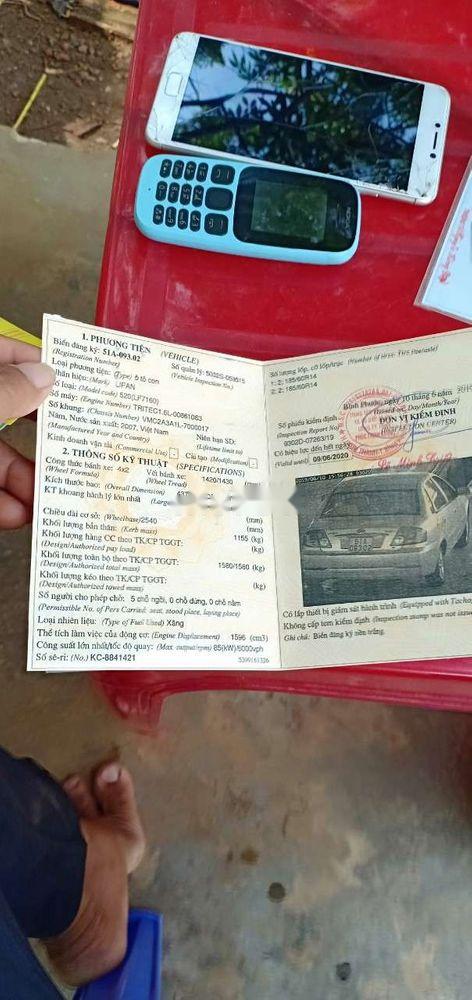 1. PHƯƠNG TIỆN (VEHICLE)
Biển đăng ký: 51A-093.02 Số quản lý: 5002S-059515
(Registration Number) (Vehicle Inspection No.)
Loại phương tiện: (Type) ô tô con
Nhãn hiệu: (Mark) LIFAN
Số loại: (Model code) 520(LF7160)
Số máy: (Engine Number) TRITEC1.6L-00861063
Số khung: (Chassis Number) VMC2A3A1L-7000017
Năm, Nước sản xuất: 2007, Việt Nam Niên hạn SD:
(Manufactured Year and Country) (Lifetime limit to)
Kinh doanh vận tải (Commercial Use) - Cải tạo (Modification) -
2. THÔNG SỐ KỸ THUẬT (SPECIFICATIONS)
Công thức bánh xe: 4x2 Vết bánh xe: 1420/1430
(Wheel Formula) (Wheel Tread)
Kích thước bao: (Overall Dimension)
KT khoang hành lý lớn nhất (mm)
Chiều dài cơ sở: (Wheelbase) 2540 (mm)
Khối lượng bản thân: (Kerb mass) 1155 (kg)
Khối lượng hàng CC theo TK/CP TGGT: (kg)
(Design/Authorized pay load)
Khối lượng toàn bộ theo TK/CP TGGT: 1580/1580 (kg)
(Design/Authorized total mass)
Khối lượng kéo theo TK/CP TGGT: (kg)
(Design/Authorized towed mass)
Số người cho phép chở: 5 chỗ ngồi, 0 chỗ đứng, 0 chỗ nằm
(Permissible No. of Pers Carried: seat, stood place, laying place)
Loại nhiên liệu: (Type of Fuel Used) Xăng
Thể tích làm việc của động cơ: (Engine Displacement) 1596 (cm3)
Công suất lớn nhất/tốc độ quay: (Max. output/rpm) 85(kW)/6000vph
Số sê-ri: (No.) KC-8841421
Số lượng lốp, cỡ lốp/trục (Number of
1: 2; 185/60R14
2: 2; 185/60R14
Bình Phước, ngày 10 tháng 6 năm
(Issued on: Day/Month/Year)
Số phiếu kiểm định ĐƠN VỊ KIỂM ĐỊNH
(Inspection Report No) (INSPECTION CENTER)
9302D-07263/19
Có hiệu lực đến hết ngày
(Valid until) 09/06/2020
Có lắp thiết bị giám sát hành trình (Equipped with
Không cấp tem kiểm định (Inspection stamp was not
Ghi chú: Biển đăng ký nền trắng.